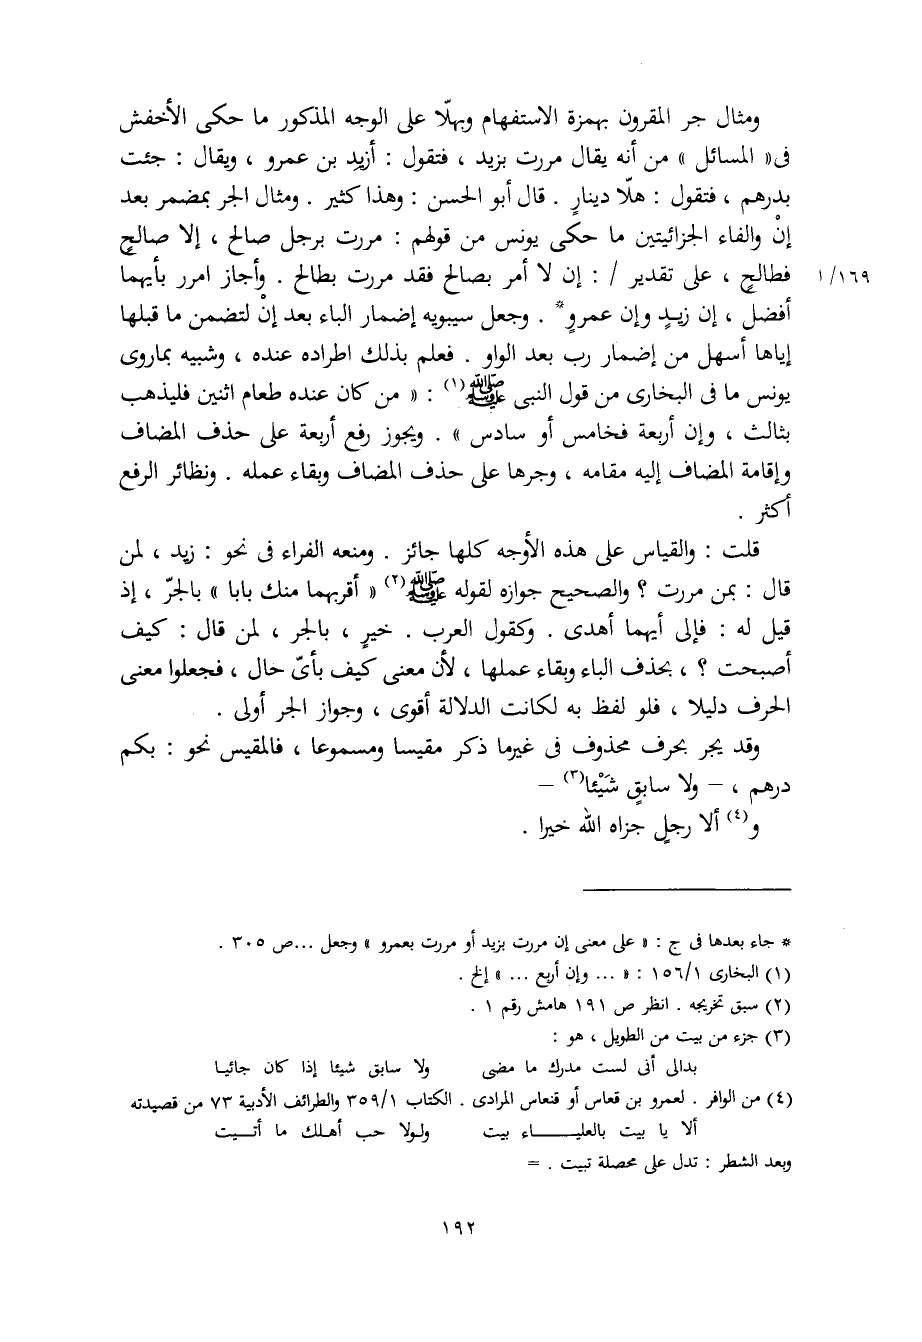 ومثال جر المقرون بهمزة الاستفهام وبهلّا على الوجه المذكور ما حكى الأخفش
فى« المسائل » من أنه يقال مررت بزيد ، فتقول : أزيدِ بن عمرو ، ويقال : جئت
بدرهم ، فتقول : هلّا دينارٍ . قال أبو الحسن : وهذا كثير . ومثال الجر بمضمر بعد
إنْ والفاء الجزائيتين ما حكى يونس من قولهم : مررت برجل صالح ، إلا صالحٍ
فطالحٍ ، على تقدير / : إن لا أمر بصالح فقد مررت بطالح . وأجاز امرر بأيهما ١/١٦٩
أفضل ، إن زيدٍ وإن عمروٍ* . وجعل سيبويه إضمار الباء بعد إنْ لتضمن ما قبلها
إياها أسهل من إضمار رب بعد الواو . فعلم بذلك اطراده عنده ، وشبيه بماروى
يونس ما فى البخارى من قول النبى ﷺ(١) : « من كان عنده طعام اثنين فليذهب
بثالث ، وإن أربعة فخامس أو سادس » . ويجوز رفع أربعة على حذف المضاف
وإقامة المضاف إليه مقامه ، وجرها على حذف المضاف وبقاء عمله . ونظائر الرفع
أكثر .
قلت : والقياس على هذه الأوجه كلها جائز . ومنعه الفراء فى نحو : زيد ، لمن
قال : بمن مررت ؟ والصحيح جوازه لقوله ﷺ(٢) « أقربهما منك بابا » بالجرّ ، إذ
قيل له : فإلى أيهما أهدى . وكقول العرب . خيرٍ ، بالجر ، لمن قال : كيف
أصبحت ؟ ، بحذف الباء وبقاء عملها ، لأن معنى كيف بأىّ حال ، فجعلوا معنى
الحرف دليلا ، فلو لفظ به لكانت الدلالة أقوى ، وجواز الجر أولى .
وقد يجر بحرف محذوف فى غيرما ذكر مقيسا ومسموعا ، فالمقيس نحو : بكم
درهم ، – ولا سابقٍ شَيْئا(٣) –
و(٤) ألا رجلٍ جزاه الله خيرا .
* جاء بعدها فى ج : « على معنى إن مررت بزيد أو مررت بعمرو » وجعل ...ص ٣٠٥ .
(١) البخارى ١٥٦/١ : « ... وإن أربع ... » إلخ .
(٢) سبق تخريجه . انظر ص ١٩١ هامش رقم ١ .
(٣) جزء من بيت من الطويل ، هو :
بدالى أنى لست مدرك ما مضى ولا سابق شيئا إذا كان جائيا
(٤) من الوافر . لعمرو بن قعاس أو قنعاس المرادى . الكتاب ٣٥٩/١ والطرائف الأدبية ٧٣ من قصيدته
ألا يا بيت بالعليـــــاء بيت ولولا حب أهلك ما أتـــيت
وبعد الشطر : تدل على محصلة تبيت . =
١٩٢